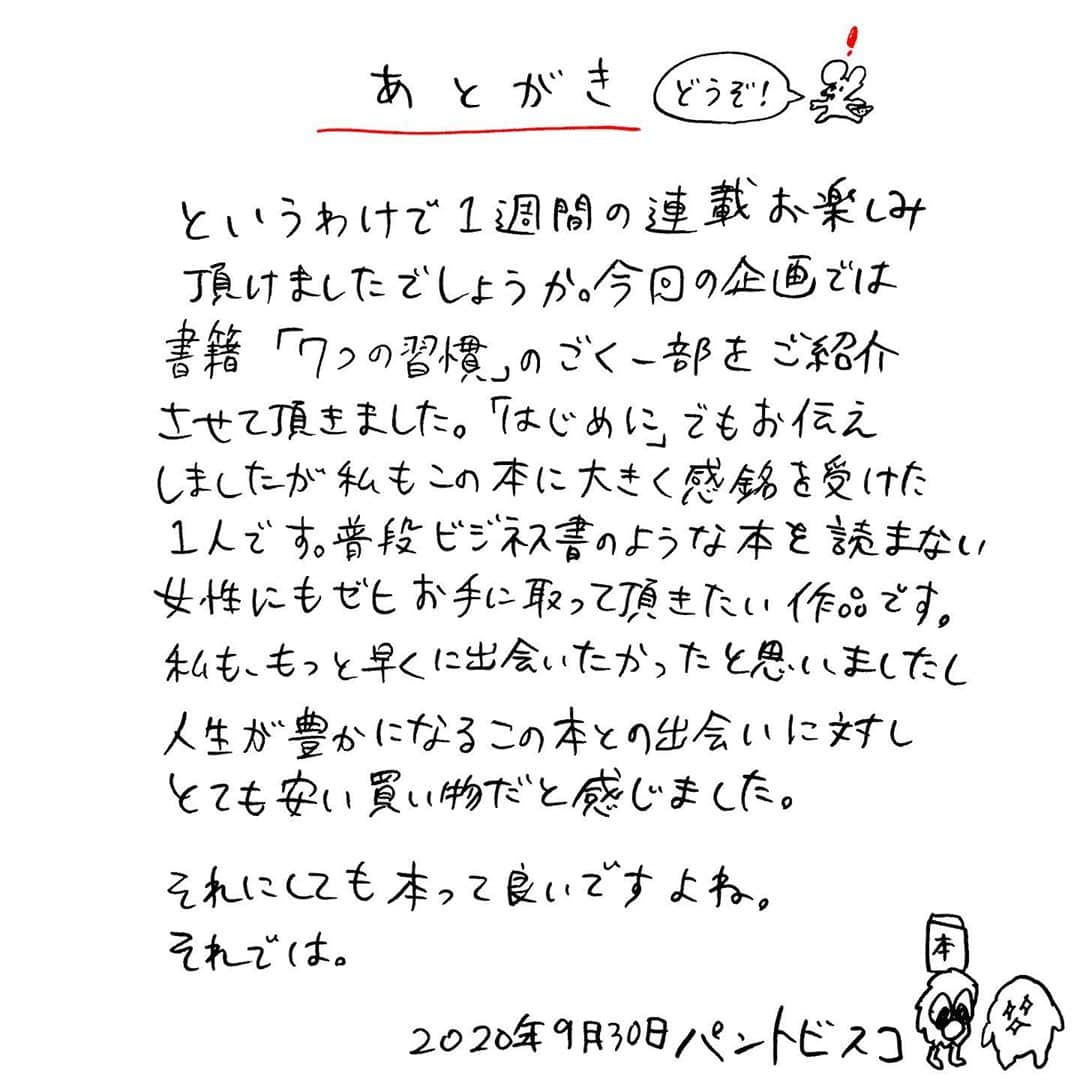 あとがき
どうぞ!
というわけで1週間の連載お楽しみ
頂けましたでしょうか。今回の企画では
書籍「7つの習慣」のごく一部をご紹介
させて頂きました。「はじめに」でもお伝え
しましたが私もこの本に大きく感銘を受けた
1人です。普段ビジネス書のような本を読まない
女性にもゼヒお手に取って頂きたい作品です。
私も、もっと早くに出会いたかったと思いましたし
人生が豊かになるこの本との出会いに対し
とても安い買い物だと感じました。
それにしても本って良いですよね。
それでは。
本
2020年9月30日パントビスコ